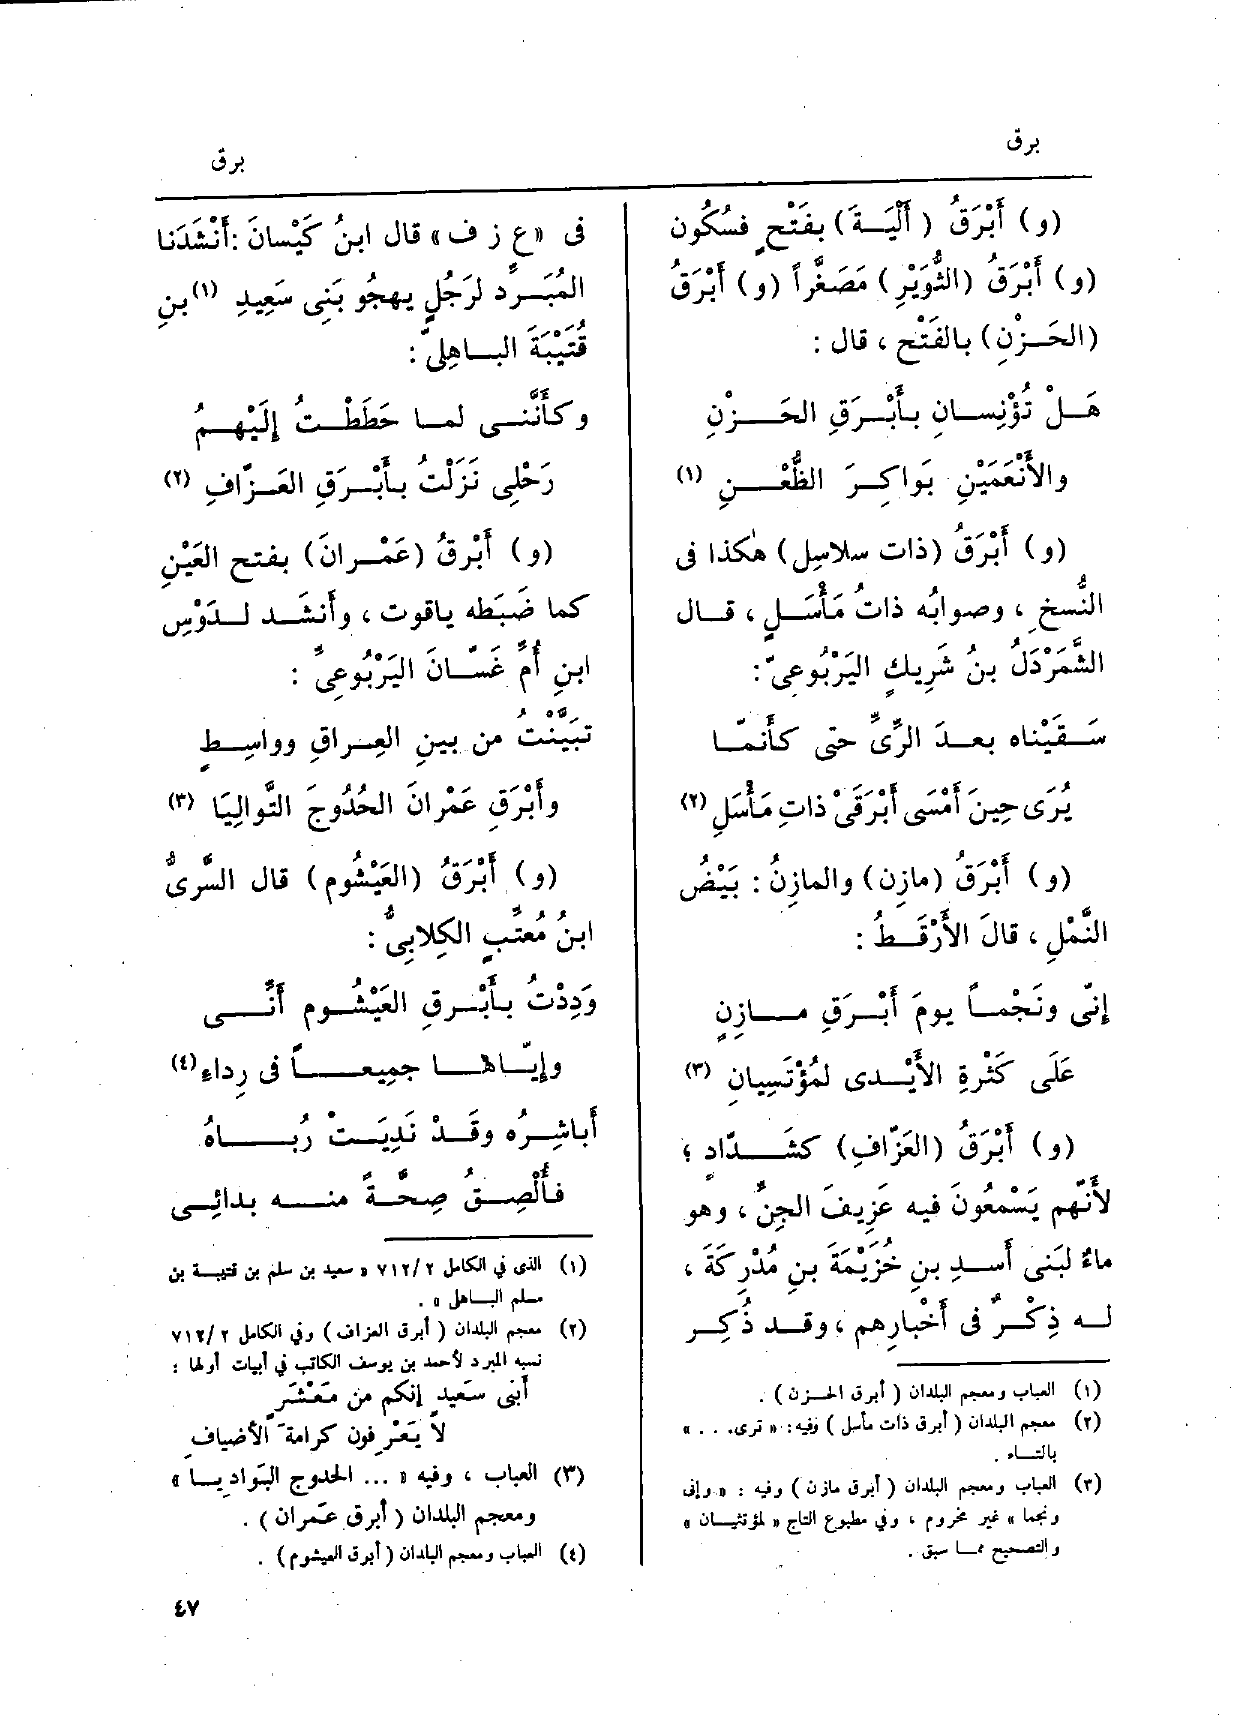 برق
برق
(و) أَبْرَقُ (أَلْيَـةَ) بفَتْحٍ فسُكُون
(و) أَبْرَقُ (الثُّوَيْرِ) مُصَغَّراً (و) أَبْرَقُ
(الحَـزْنِ) بالفَتْح ، قال :
هَـلْ تُؤْنِسـانِ بـأَبْـرَقِ الحَـزْنِ
والأَنْعَمَيْنِ بَواكِـرَ الظُّعْـنِ (١)
(و) أَبْرَقُ (ذات سلاسِل) هٰكذا فى
النُّسخِ ، وصوابُه ذاتُ مَأْسَلٍ ، قـال
الشَّمَرْدَلُ بنُ شَرِيكٍ اليَرْبُوعِىّ :
سَـقَيْناه بعـدَ الرِّىِّ حتى كَأَنمّـا
يُرَى حِينَ أَمْسَى أَبْرَقَىْ ذاتِ مَأْسَلِ (٢)
(و) أَبْرَقُ (مازِن) والمازِنُ : بَيْضُ
النَّمْلِ ، قالَ الأَرْقَـطُ :
إِنّى ونَجْمـاً يومَ أَبْـرَقِ مـازِنٍ
عَلَى كَثْرةِ الأَيْـدى لمُؤْتَسِيانِ (٣)
(و) أَبْرَقُ (العَزّافِ) كشَـدّادٍ ؛
لأَنَّهم يَسْمَعُونَ فيه عَزِيفَ الجِنِّ ، وهو
ماءٌ لبَنى أَسـدِ بنِ خُزَيْمَةَ بنِ مُدْرِكَةَ ،
لـه ذِكْـرٌ فى أَخْبارِهم ، وقـد ذُكِـر
(١) العباب ومعجم البلدان ( أبرق الحزن ) .
(٢) معجم البلدان ( أبرق ذات مأسل ) وفيه : « ترى. . . »
بالتـاء .
(٣) العباب ومعجم البلدان ( أبرق مازن ) وفيه : « وإنى
ونجما » غير مخروم ، وفي مطبوع التاج « لمؤتثيـان »
والتصحيح ممـا سبق .
فى «ع ز ف» قال ابنُ كَيْسانَ : أَنْشَدَنا
المُبَـرِّد لرَجُلٍ يهجُو بَنِى سَعِيدِ (١) بنِ
قُتَيْبَةَ البـاهِلِىّ :
وكـأَنَّنـى لمـا حَطَطْـتُ إِلَيْهـمُ
رَحْلِى نَزَلْتُ بـأَبْـرَقِ العَـزّافِ (٢)
(و) أَبْرقُ (عَمْـرانَ) بفتح العَيْنِ
كما ضَبَطه ياقوت ، وأَنشَد لـدَوْسِ
ابنِ أُمِّ غَسّـانَ اليَرْبُوعِىِّ :
تبَيَّنْتُ من بينِ العِـراقِ وواسِـطٍ
وأَبْرَقِ عَمْرانَ الحُدُوجَ التَّوالِيَا (٣)
(و) أَبْرَقُ (العَيْشُومِ) قال السَّرِىُّ
ابنُ مُعتِّبٍ الكِلابِىُّ :
وَدِدْتُ بـأَبْـرقِ العَيْشُـومِ أَنِّـى
وإِيّـاهـا جمِيعـاً فى رِداءِ (٤)
أُباشِـرُه وقَـدْ نَدِيَـتْ رُبـاهُ
فـأُلْصِـقُ صِحَّةً منـه بدائِـى
(١) الذى في الكامل ٢ /٧١٢ « سعيد بن سلم بن قتيبـة بن
مسلم البـاهلى » .
(٢) معجم البلدان ( أبرق العزاف ) وفي الكامل ٢ /٧١٢
نسبه المبرد لأحمد بن يوسف الكاتب في أبيات أولها :
أبَنى سَعيدٍ إنكم من مَعْشَرٍ
لا يَعْرِفون كرامةَ الأضيافِ
(٣) العباب ، وفيه « ... الحدوج البَواديـا »
ومعجم البلدان ( أبرق عَمران ) .
(٤) العباب ومعجم البلدان ( أبرق العيشوم ) .
٤٧